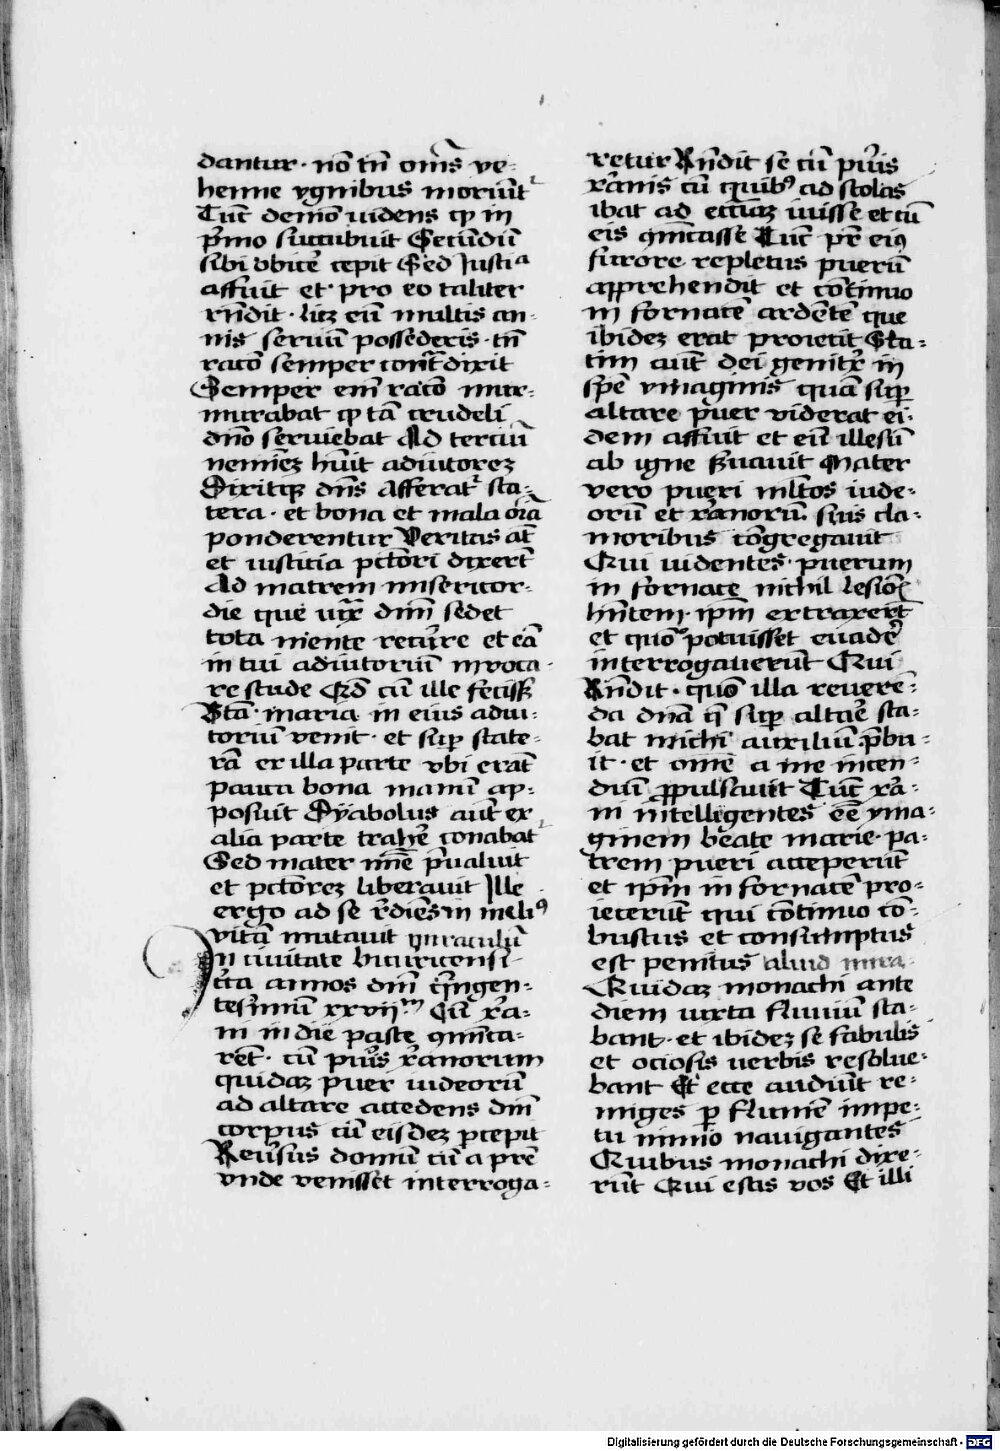 dantur · nō tn̄ om̄s ve-
henne ygnibus moriūt᷑
Tūc demō uidens ꝙ in
pͥmo succubuit Secūdū
sibi obicē cepit Sed Justiª
affuit et pro eo taliter
rn̄dit · licꝫ eū multis an-
nis seruū possederis · tn̄
racō semper cont͛dixit
Semper em̄ racō mur-
murabat ꝙ tā crudeli
dnō seruiebat Ad terciū
neminēꝫ hūit adiutoreꝫ
Dixitqꝫ dn̄s Afferat᷑ sta-
tera · et bona et mala oīa
ponderentur Veritas āt
et iusticia pctōri dixerūt
Ad matrem misericor-
die que iux͛ dnm̄ sedet
tota mente recur͛re et eā
in tui adiutoriū invoca-
re stude Qd̄ cū ille fecissꝫ
Btā · maria in eius adiu-
toriū venit · et suꝑ state-
rā ex illa parte vbi erāt
pauca bona manū ap-
posuit Dyabolus aūt ex
alia parte trahe͛ conabat᷑
Sed mater mīe p͛ualuit
et pctōreꝫ liberauit Ille
ergo ad se r͛diēs in meliꝰ
vitā mutauit miraculū
In ciuitate bituricensi
cͥrca annos dnī qͥngen-
tesͥmū xxvijᵐ Cū xͥa-
ni in die pasce ꝯmīca-
rēt · cū pueͥs xͥanorum
quidaꝫ puer iudeorū
ad altare accedens dnī
corpus cū eisdeꝫ ꝑcepit
Reuͥsus domū cū a pr̄e
vnde venisset interroga-
retur Rn̄dit se cū pueͥs
xͥanis cū quibꝰ ad scolas
ibat ad eccām iuisse et cū
eis ꝯmīcasse Tūc pr̄ eiꝰ
furore repletus puerū
apprehendit et cōtinuo
in fornacē ardētē que
ibideꝫ erat proiecit Sta-
tim aūt dei genitͥx in
spē ymaginis quā suꝑ
altare puer viderat ei-
dem affuit et eū illesū
ab igne s͛uauit Mater
vero pueri ml̄tos iude-
orū et xͥanorū suis cla-
moribus cōgregauit
Qui uidentes · puerum
in fornace nichil lesiōis
hn̄tem · ip̄m extraxerūt
et quōº potuisset euade͛
interrogauerūt Qui
Rn̄dit · quō illa reuerē-
da dnā q̄ suꝑ altae͛ sta-
bat michi auxiliū p̄bu-
it · et om̄e a me incen-
diū ꝓpulsauit Tūc xͥa-
ni intelligentes eē͛ yma-
ginem beate marie · pa-
trem pueri acceperūt
et ip̄m in fornacē pro-
iecerūt qui cōtinuo cō-
bustus et consumptus
est penitus aliud mira·
Quidaꝫ monachi ante
diem iuxta fluuiū sta-
bant · et ibideꝫ se fabulis
et ociosis uerbis resolue-
bant Et ecce audiūt re-
miges ꝑ fluuiē impe-
tu nimio nauigantes
Quibus monachi dixe-
rūt Qui estis vos Et illi
Digitalisierung gefördert durch die Deutsche Forschungsgemeinschaft · DFG